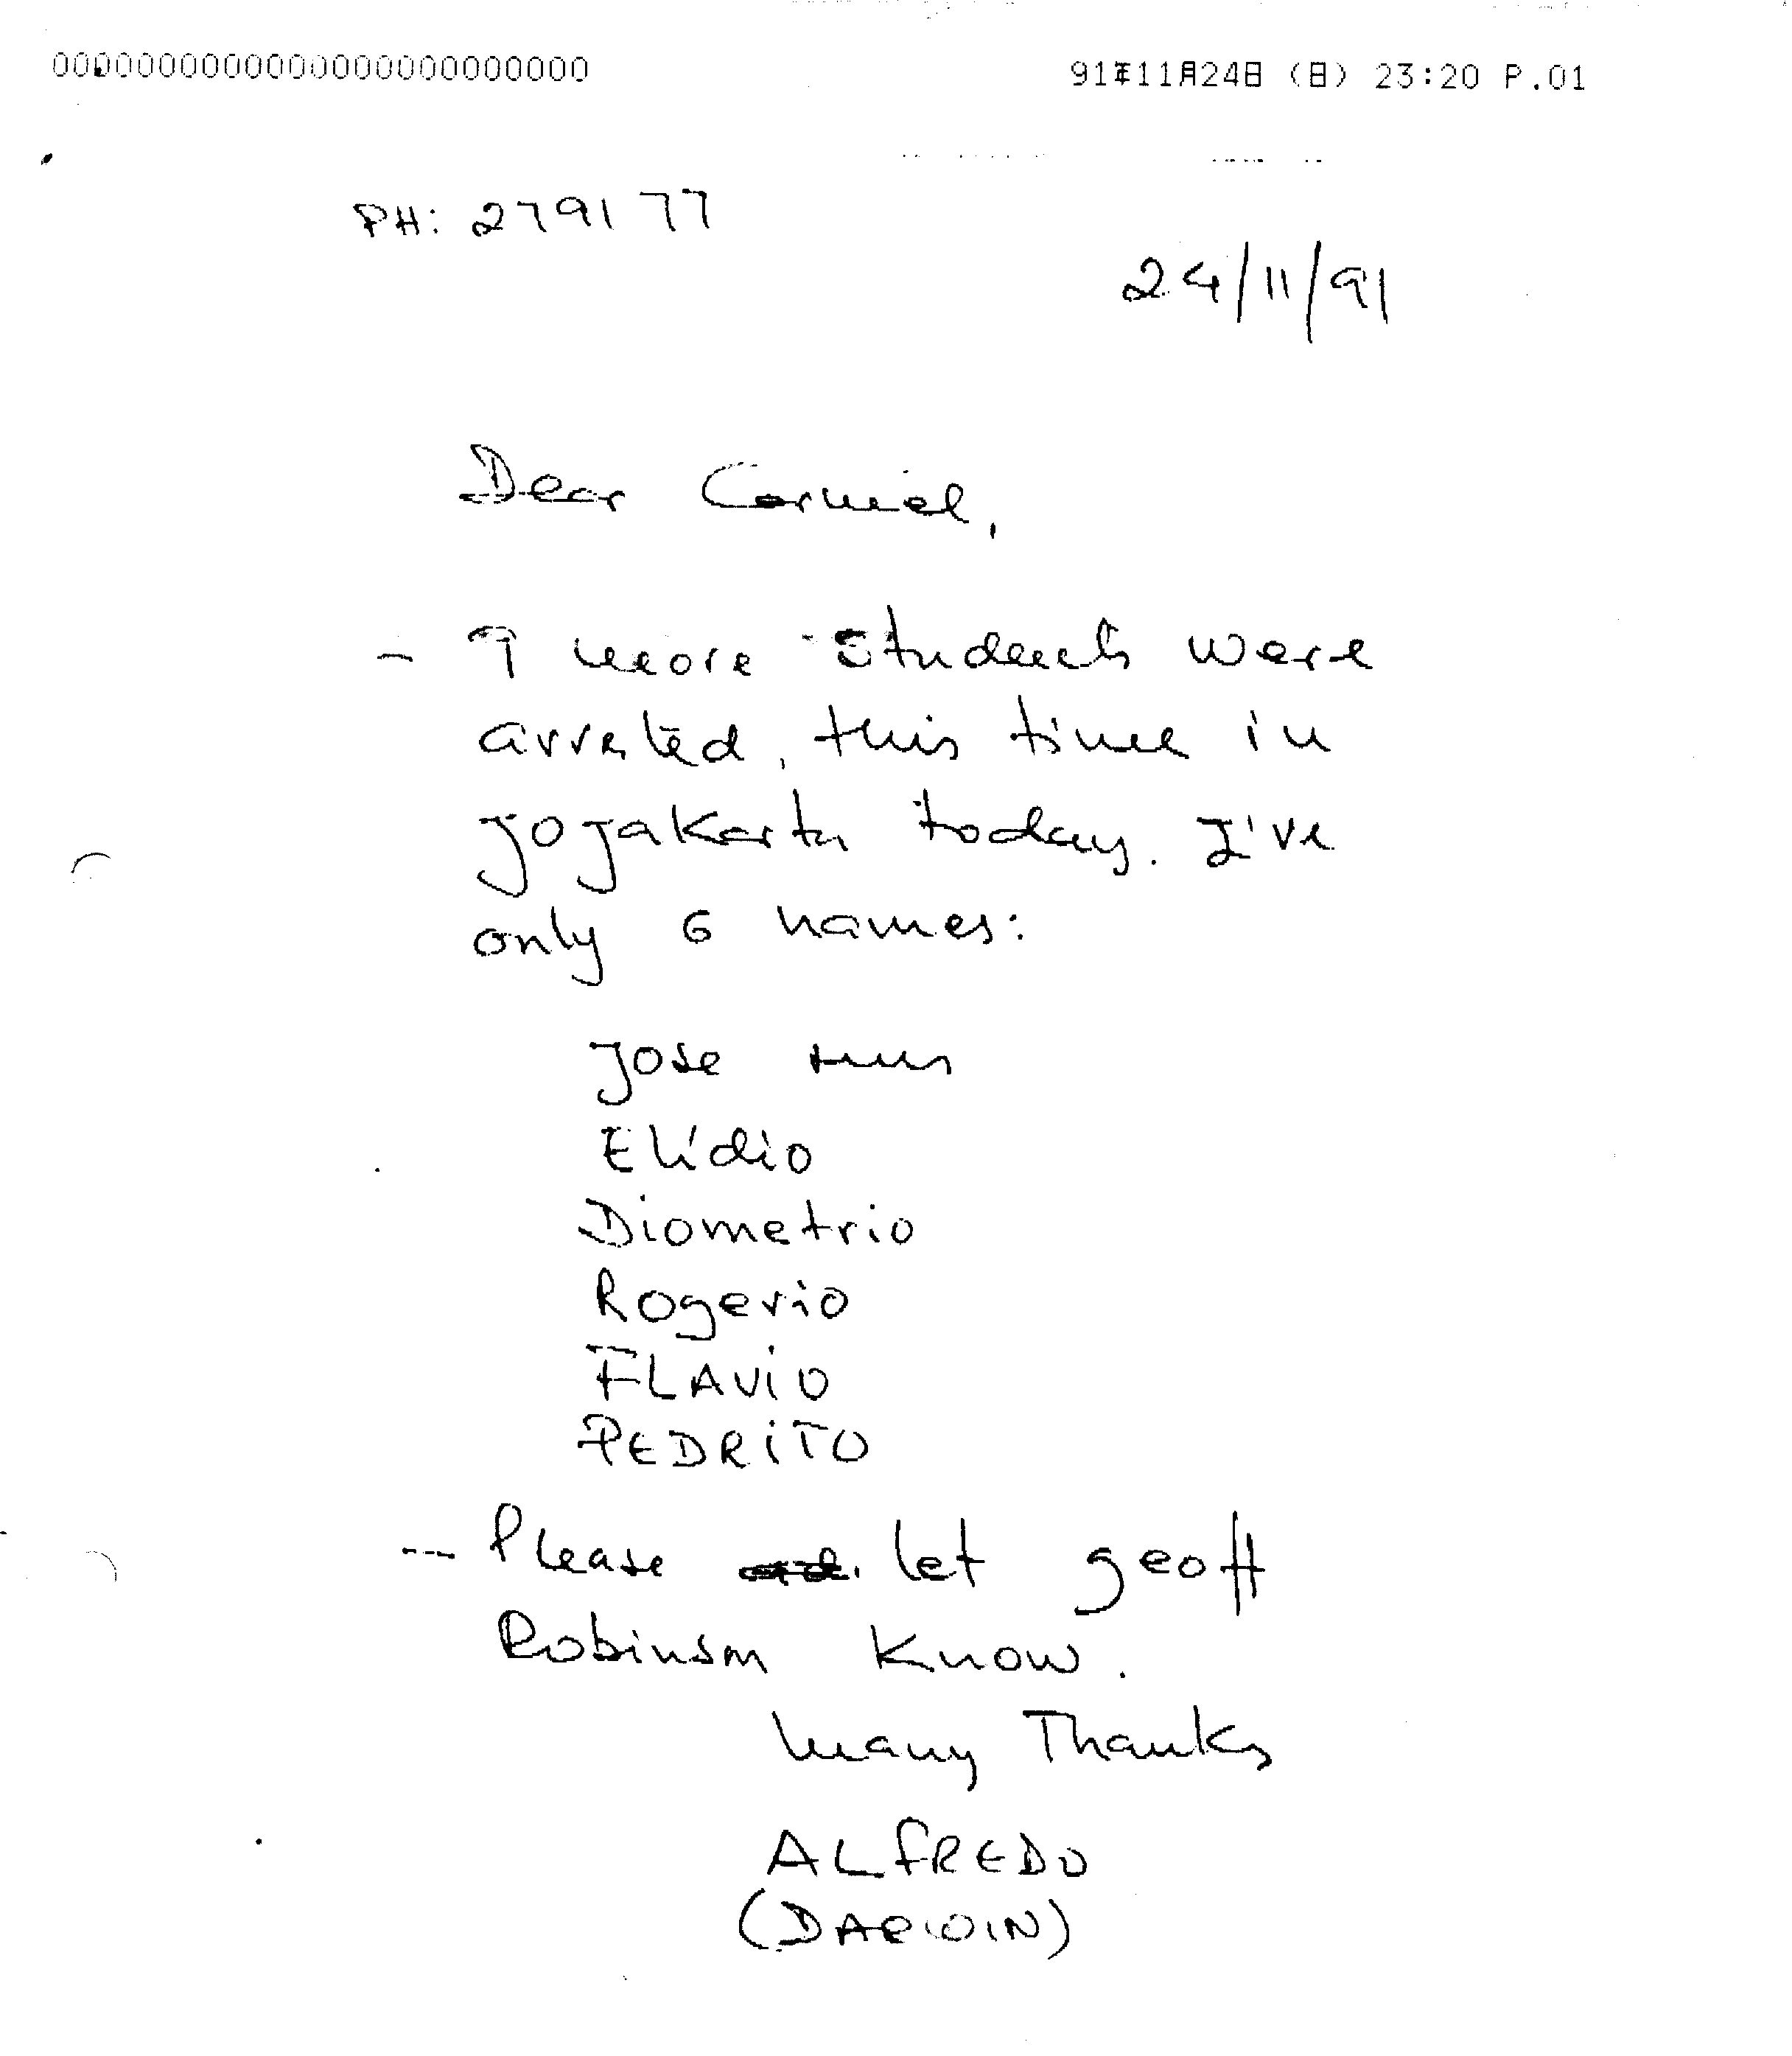 0000000000000000000000000 91年11月24日 (日) 23:20 P.01
PH: 279177
24/11/91
Dear Carmel,
- 9 more students were
arrested, this time in
Jojakarta today. I've
only 6 names:
Jose
Elídio
Diometrio
Rogerio
FLAViO
PEDRiTO
- Please let geoff
Robinson Know.
Many Thanks
ALFREDO
(DARWIN)